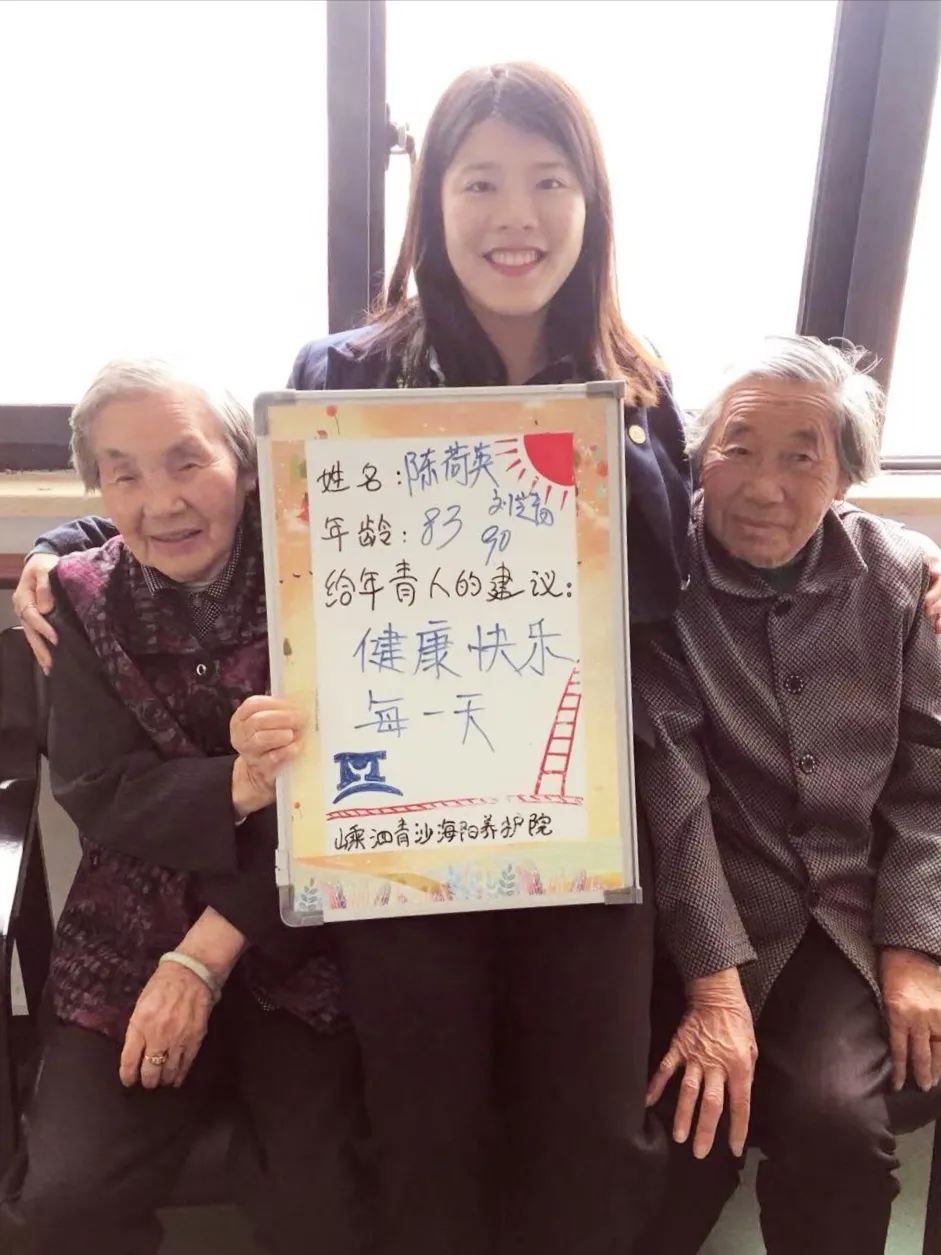 姓名:陈荷英
年龄:83 90
给年青人的建议:
健康快乐
每一天
嵊泗青沙海阳养护院